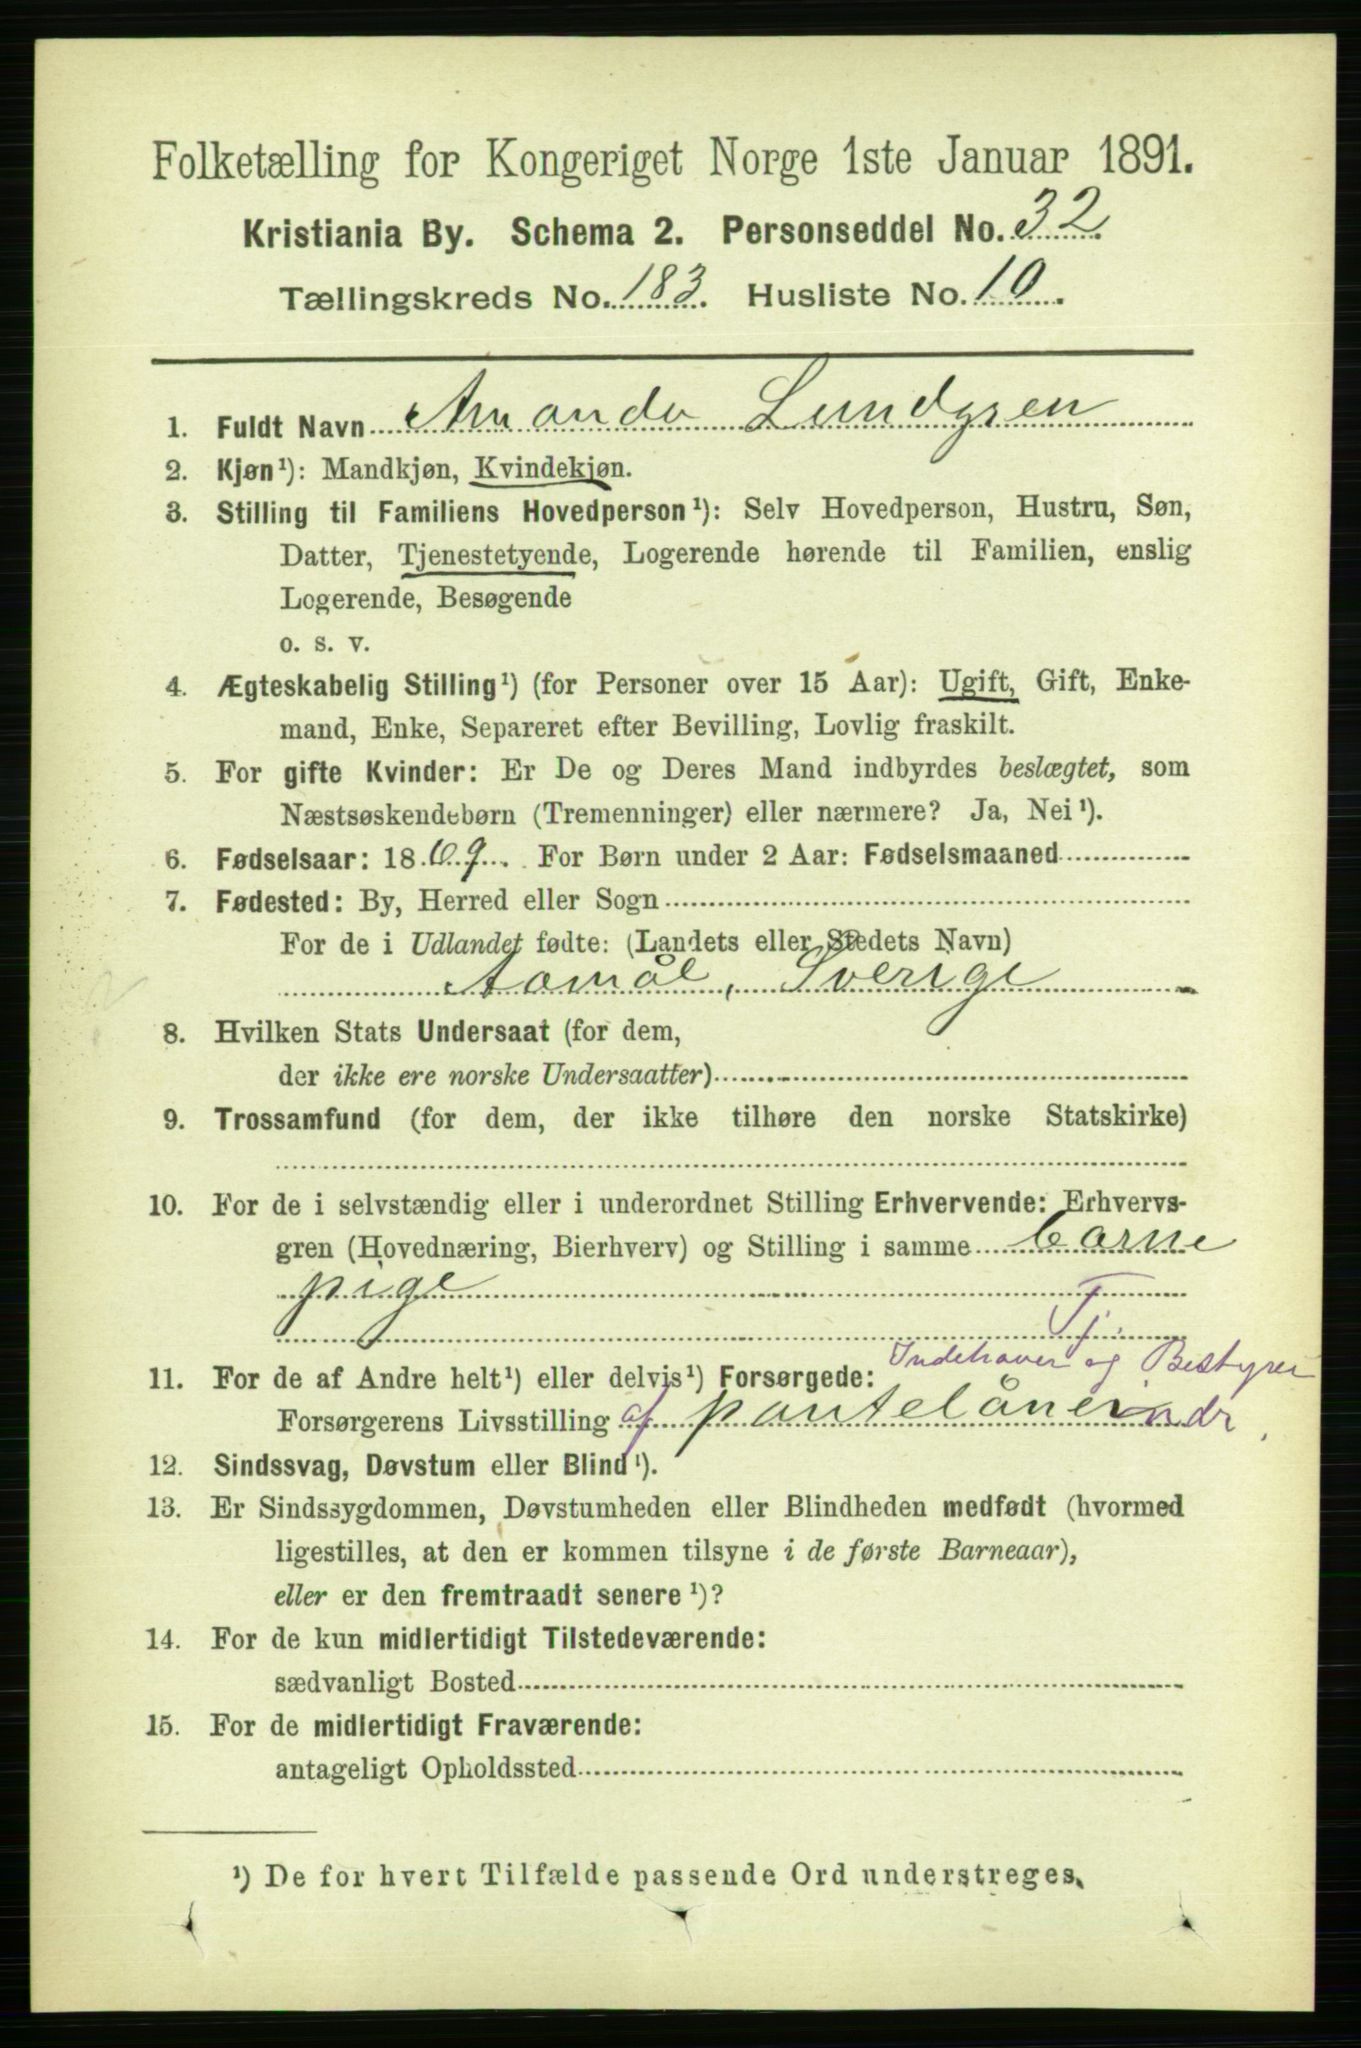 Folketælling for Kongeriget Norge 1ste Januar 1891.
Kristiania By. Schema 2. Personseddel No. 32
Tællingskreds No. 183. Husliste No. 10.
1. Fuldt Navn Amanda Lundgren
2. Kjøn¹): Mandkjøn, Kvindekjøn.
3. Stilling til Familiens Hovedperson¹): Selv Hovedperson, Hustru, Søn,
Datter, Tjenestetyende, Logerende hørende til Familien, enslig
Logerende, Besøgende
o. s. v.
4. Ægteskabelig Stilling¹) (for Personer over 15 Aar): Ugift, Gift, Enke-
mand, Enke, Separeret efter Bevilling, Lovlig fraskilt.
5. For gifte Kvinder: Er De og Deres Mand indbyrdes beslægtet, som
Næstsøskendebørn (Tremenninger) eller nærmere? Ja, Nei¹).
6. Fødselsaar: 1869. For Børn under 2 Aar: Fødselsmaaned
7. Fødested: By, Herred eller Sogn
For de i Udlandet fødte: (Landets eller Stedets Navn)
Aamål, Sverige
8. Hvilken Stats Undersaat (for dem,
der ikke ere norske Undersaatter)
9. Trossamfund (for dem, der ikke tilhøre den norske Statskirke)
10. For de i selvstændig eller i underordnet Stilling Erhvervende: Erhvervs-
gren (Hovednæring, Bierhverv) og Stilling i samme barne
pige
Tj.
Indehaver og Bestyrer
11. For de af Andre helt¹) eller delvis¹) Forsørgede:
Forsørgerens Livsstilling af pantelåneindr.
12. Sindssvag, Døvstum eller Blind¹).
13. Er Sindssygdommen, Døvstumheden eller Blindheden medfødt (hvormed
ligestilles, at den er kommen tilsyne i de første Barneaar),
eller er den fremtraadt senere¹)?
14. For de kun midlertidigt Tilstedeværende:
sædvanligt Bosted
15. For de midlertidigt Fraværende:
antageligt Opholdssted
¹) De for hvert Tilfælde passende Ord understreges.